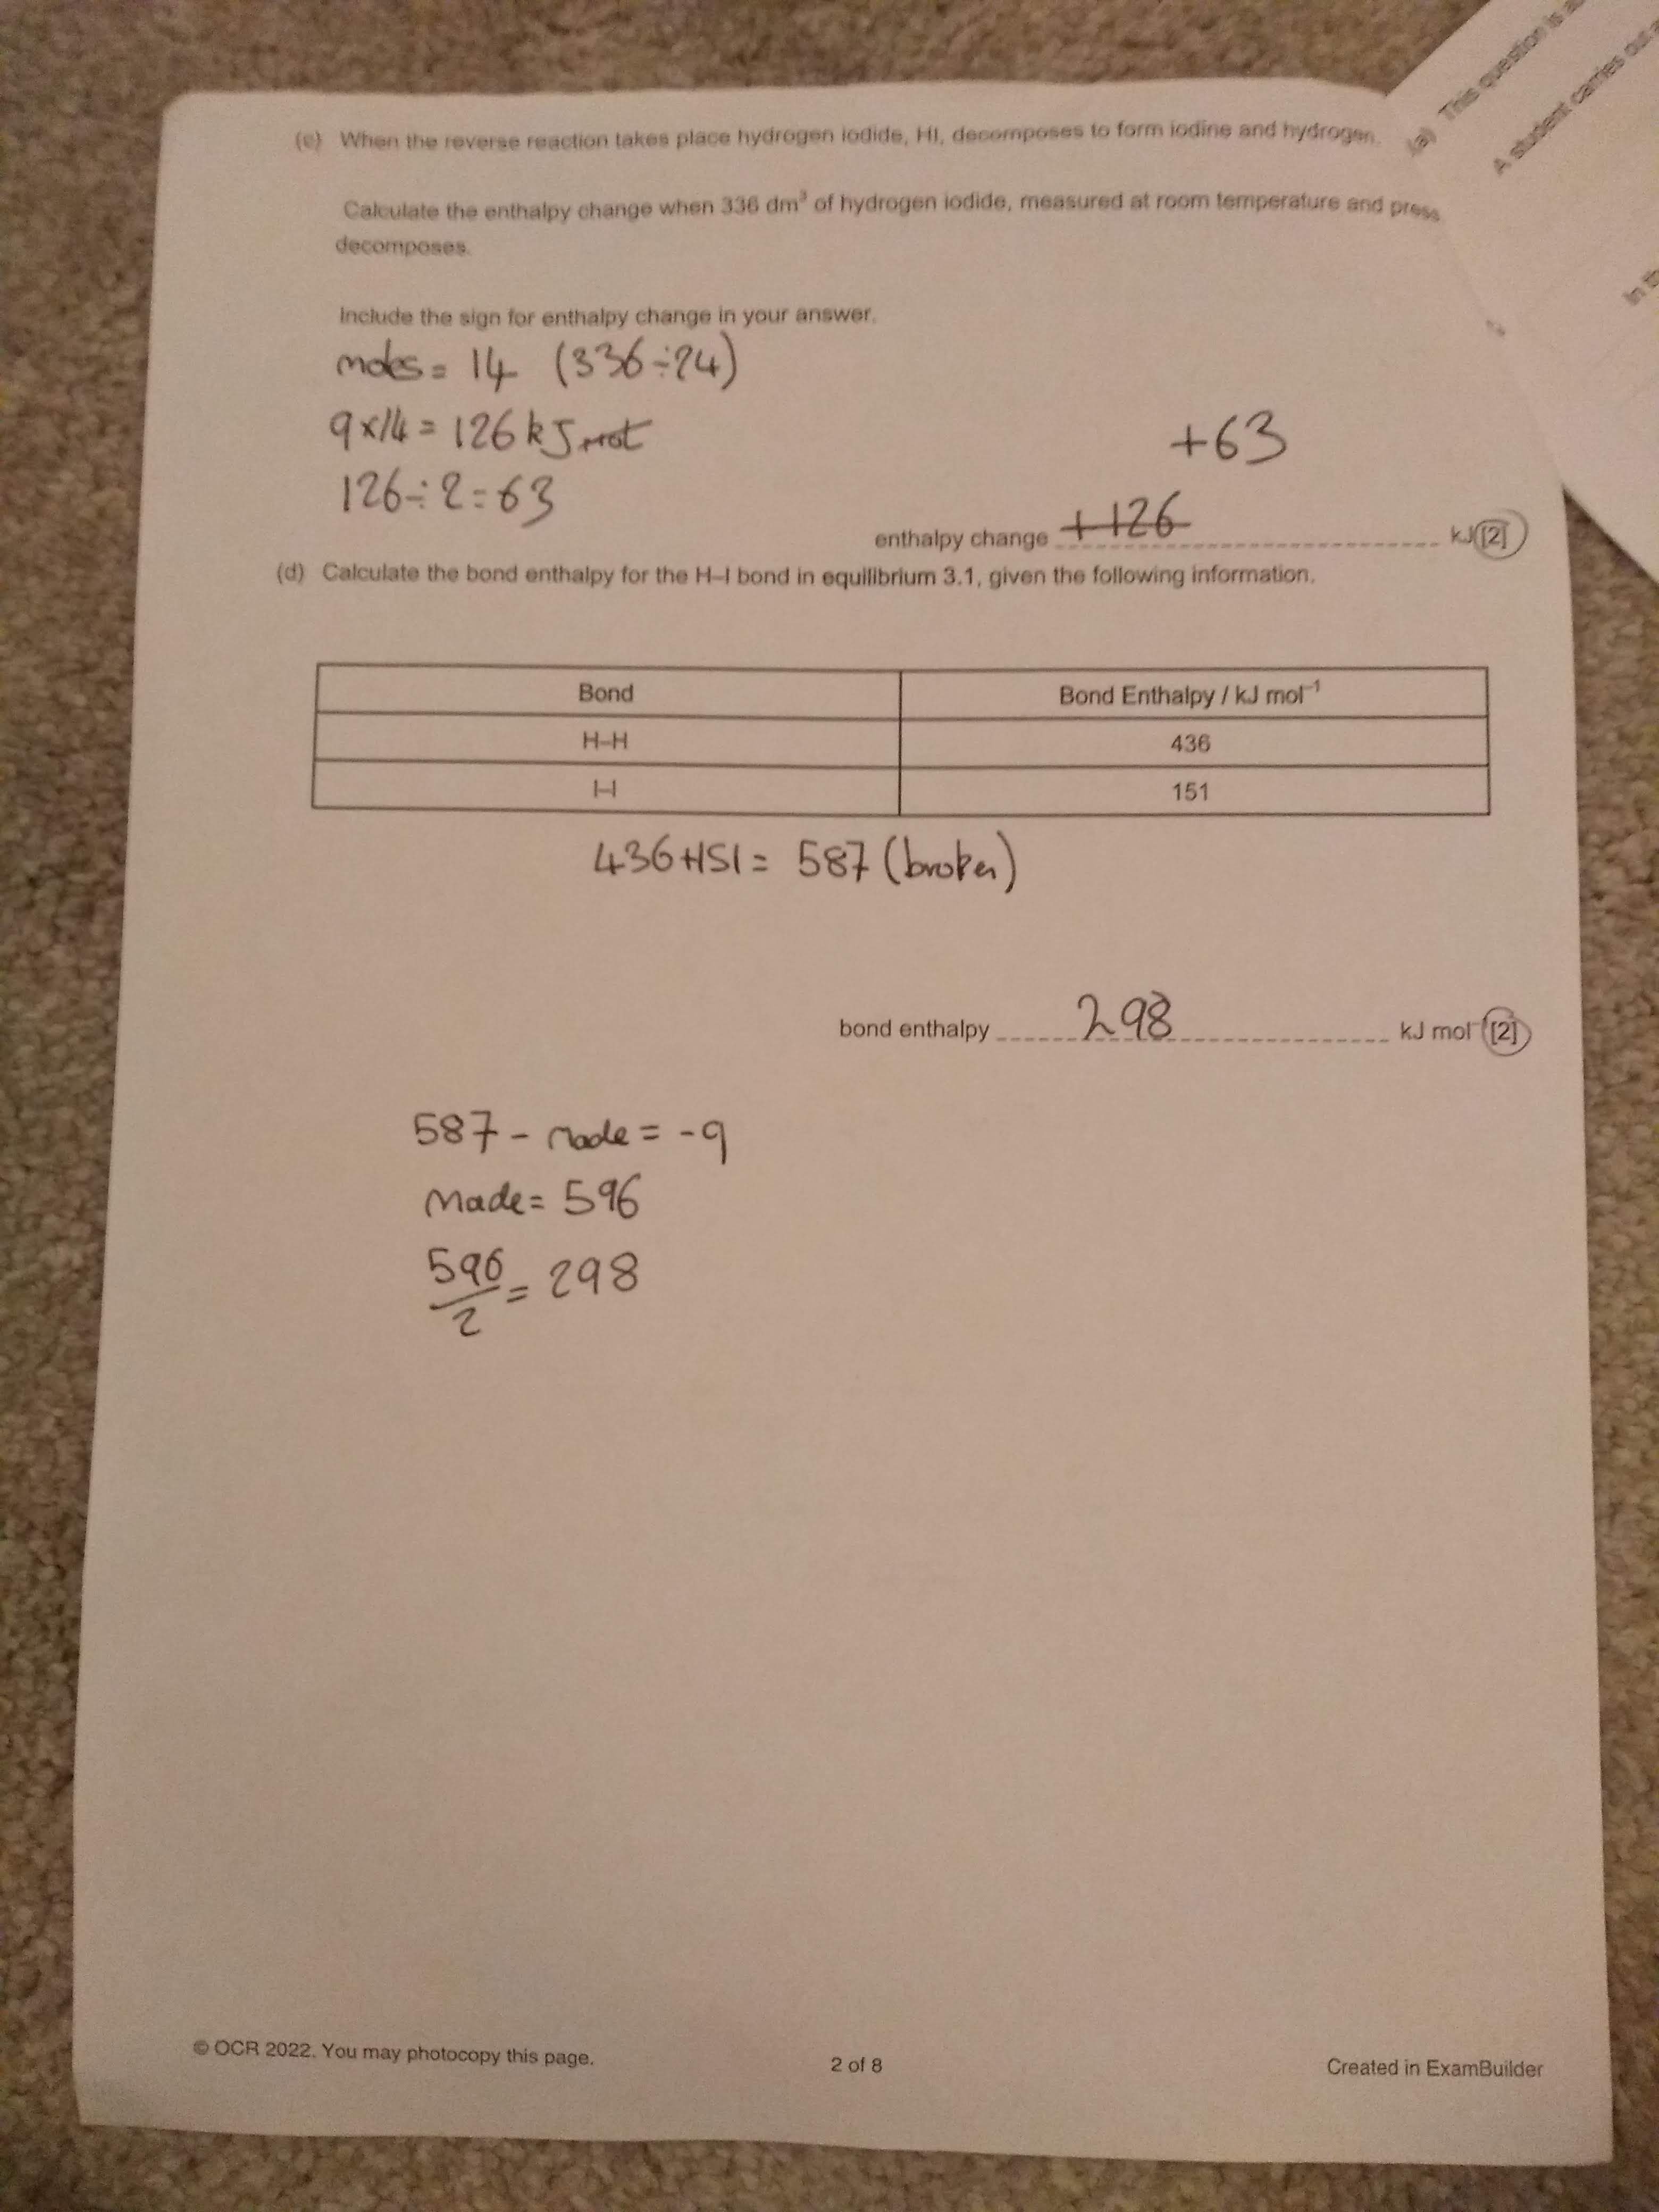 (a) This question is a
A student carries out a
In th
(c) When the reverse reaction takes place hydrogen iodide, HI, decomposes to form iodine and hydrogen.
Calculate the enthalpy change when 336 dm³ of hydrogen iodide, measured at room temperature and press
decomposes.
Include the sign for enthalpy change in your answer.
moles = 14 (336÷24)
9×14 = 126 kJ
126÷2=63
+63
enthalpy change +126 kJ [2]
(d) Calculate the bond enthalpy for the H–I bond in equilibrium 3.1, given the following information.
Bond Bond Enthalpy / kJ mol⁻¹
H–H 436
I–I 151
436+151= 587 (broken)
bond enthalpy 298 kJ mol⁻¹ [2]
587 - made = -9
Made = 596
596/2 = 298
© OCR 2022. You may photocopy this page. 2 of 8 Created in ExamBuilder